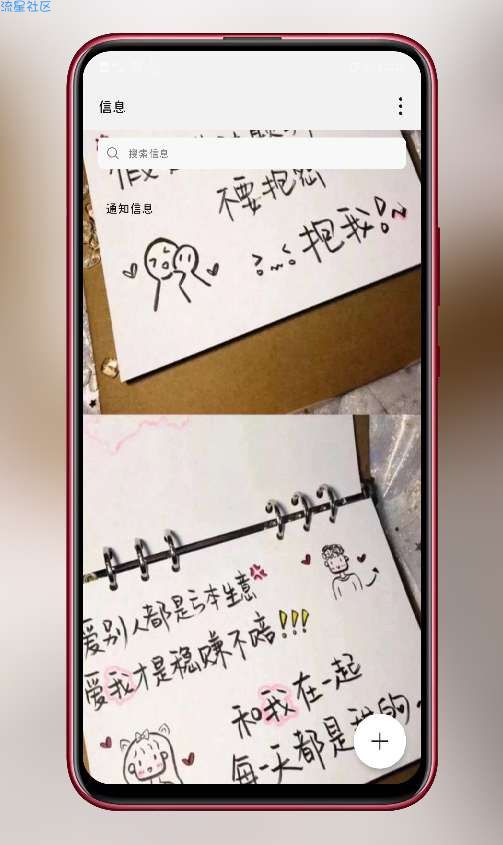 流星社区
信息
搜索信息
不要抱怨
通知信息
抱我!~
爱别人都是亏本生意
爱我才是稳赚不赔!!!
和我在一起
每一天都是我的